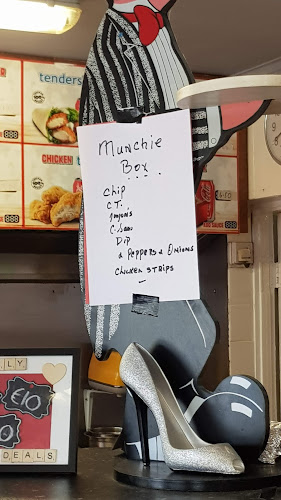 tenders
CHICKEN
Munchie
Box
Chip
C.T.
Dip
& Peppers & Onions
Chicken STRIPS
£10
DEALS